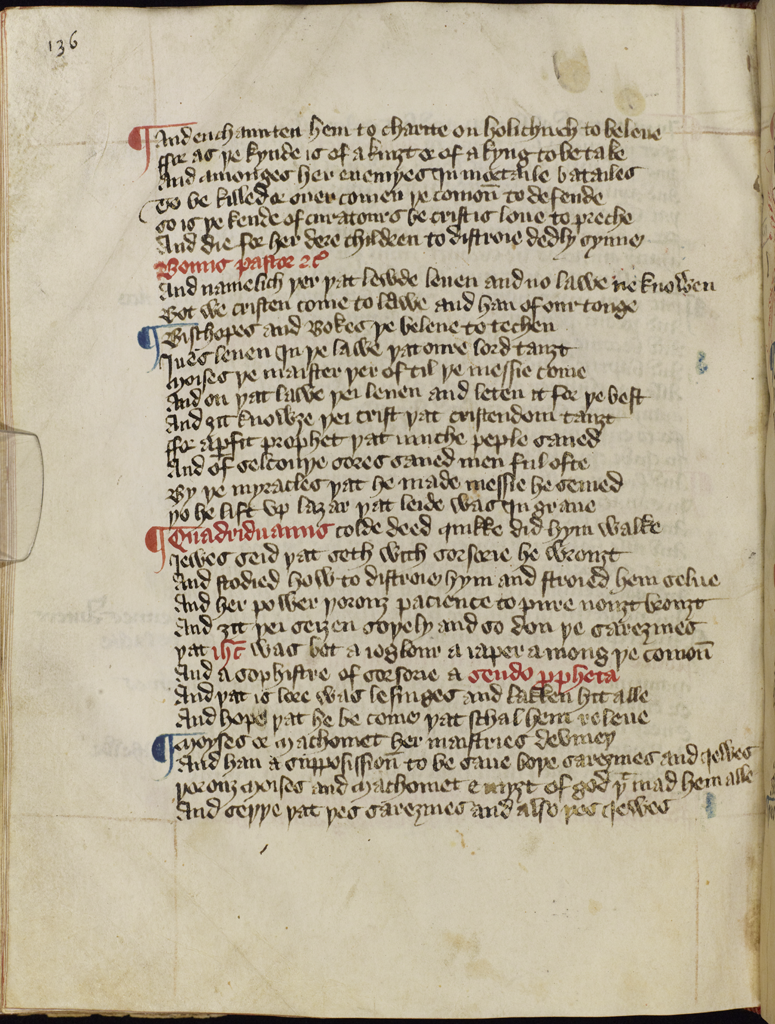 136
And enchaunten hem to charite on holichirch to beleue
ffor as þe kynde is of a knizt & of a kyng to be take
And amonges her enemyes In mortaile batailes
To be killed & ouer comen þe comoū to defende
So is þe kende of curatours be cristis loue to preche
And die for her dere children to distroie dedly synne
Bonus pastor &c
And namelich þer þat lewde leuen and no lawe ne knowȝen
Bot we cristen come to lawe and han of our tonge
Bisshopes and Bokes þe beleue to techen
Iues leuen In þe lawe þat oure lord tauȝt
Moises þe maister þer of til þe messie come
And on þat lawe þei leuen and leten it for þe best
And ȝit knowȝe þei crist þat cristendom tauȝt
ffor a pfit prophet þat muche peple saued
And of selcouþe sores saued men ful ofte
By þe myracles þat he made messie he semed
Þo he lift vp lazar þat leide was In graue
Quadriduanus colde deed quikke did hym walke
Iewes seid þat seth with sorserie he wrouȝt
And studied how to distroie hym and stroied hem selue
And her power þorouȝ pacience to pure nouȝt brouȝt
And ȝit þei seizen soþely and so don þe sarezines
Þat ihc was bot a ioglour a iaper among þe comoū
And a sophistre of sorserie a seudo ppheta
And þat is lore was lesinges and lakken hit alle
And hope þat he be come þat schal hem releue
Moyses & Machomet her maistries deviney
And han a supposissioū to be saue boþe sarezines and Iewes
Þorouȝ Moises and Machomet & myȝt of god þt mad hem alle
And seþþe þat þes sarezines and also þes Iewes